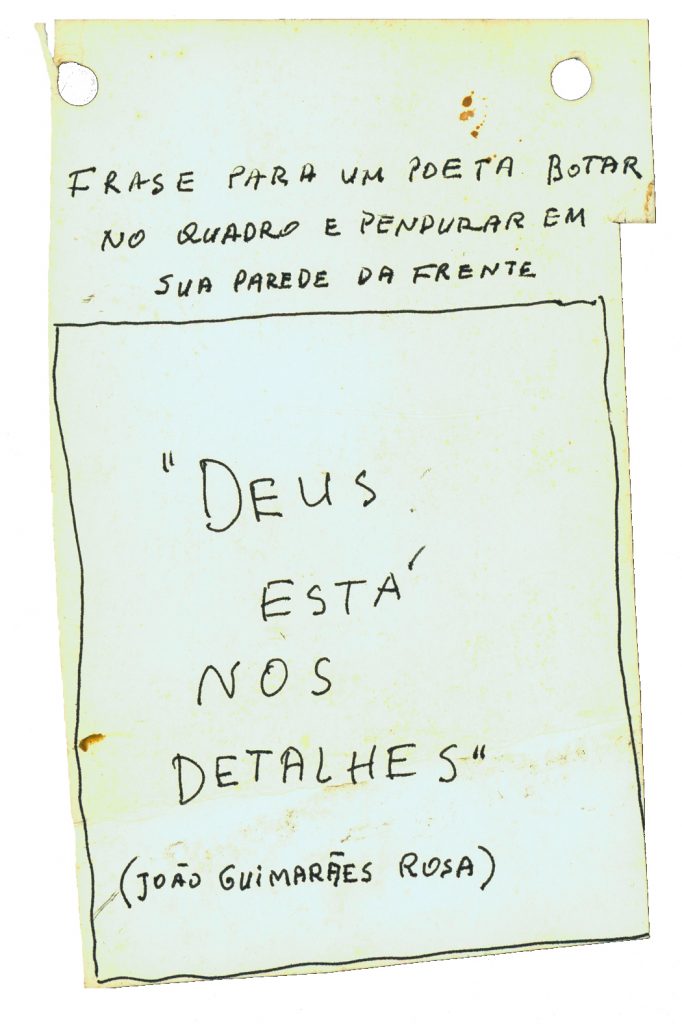 FRASE PARA UM POETA BOTAR
NO QUADRO E PENDURAR EM
SUA PAREDE DA FRENTE
"DEUS
ESTÁ
NOS
DETALHES"
(JOÃO GUIMARÃES ROSA)